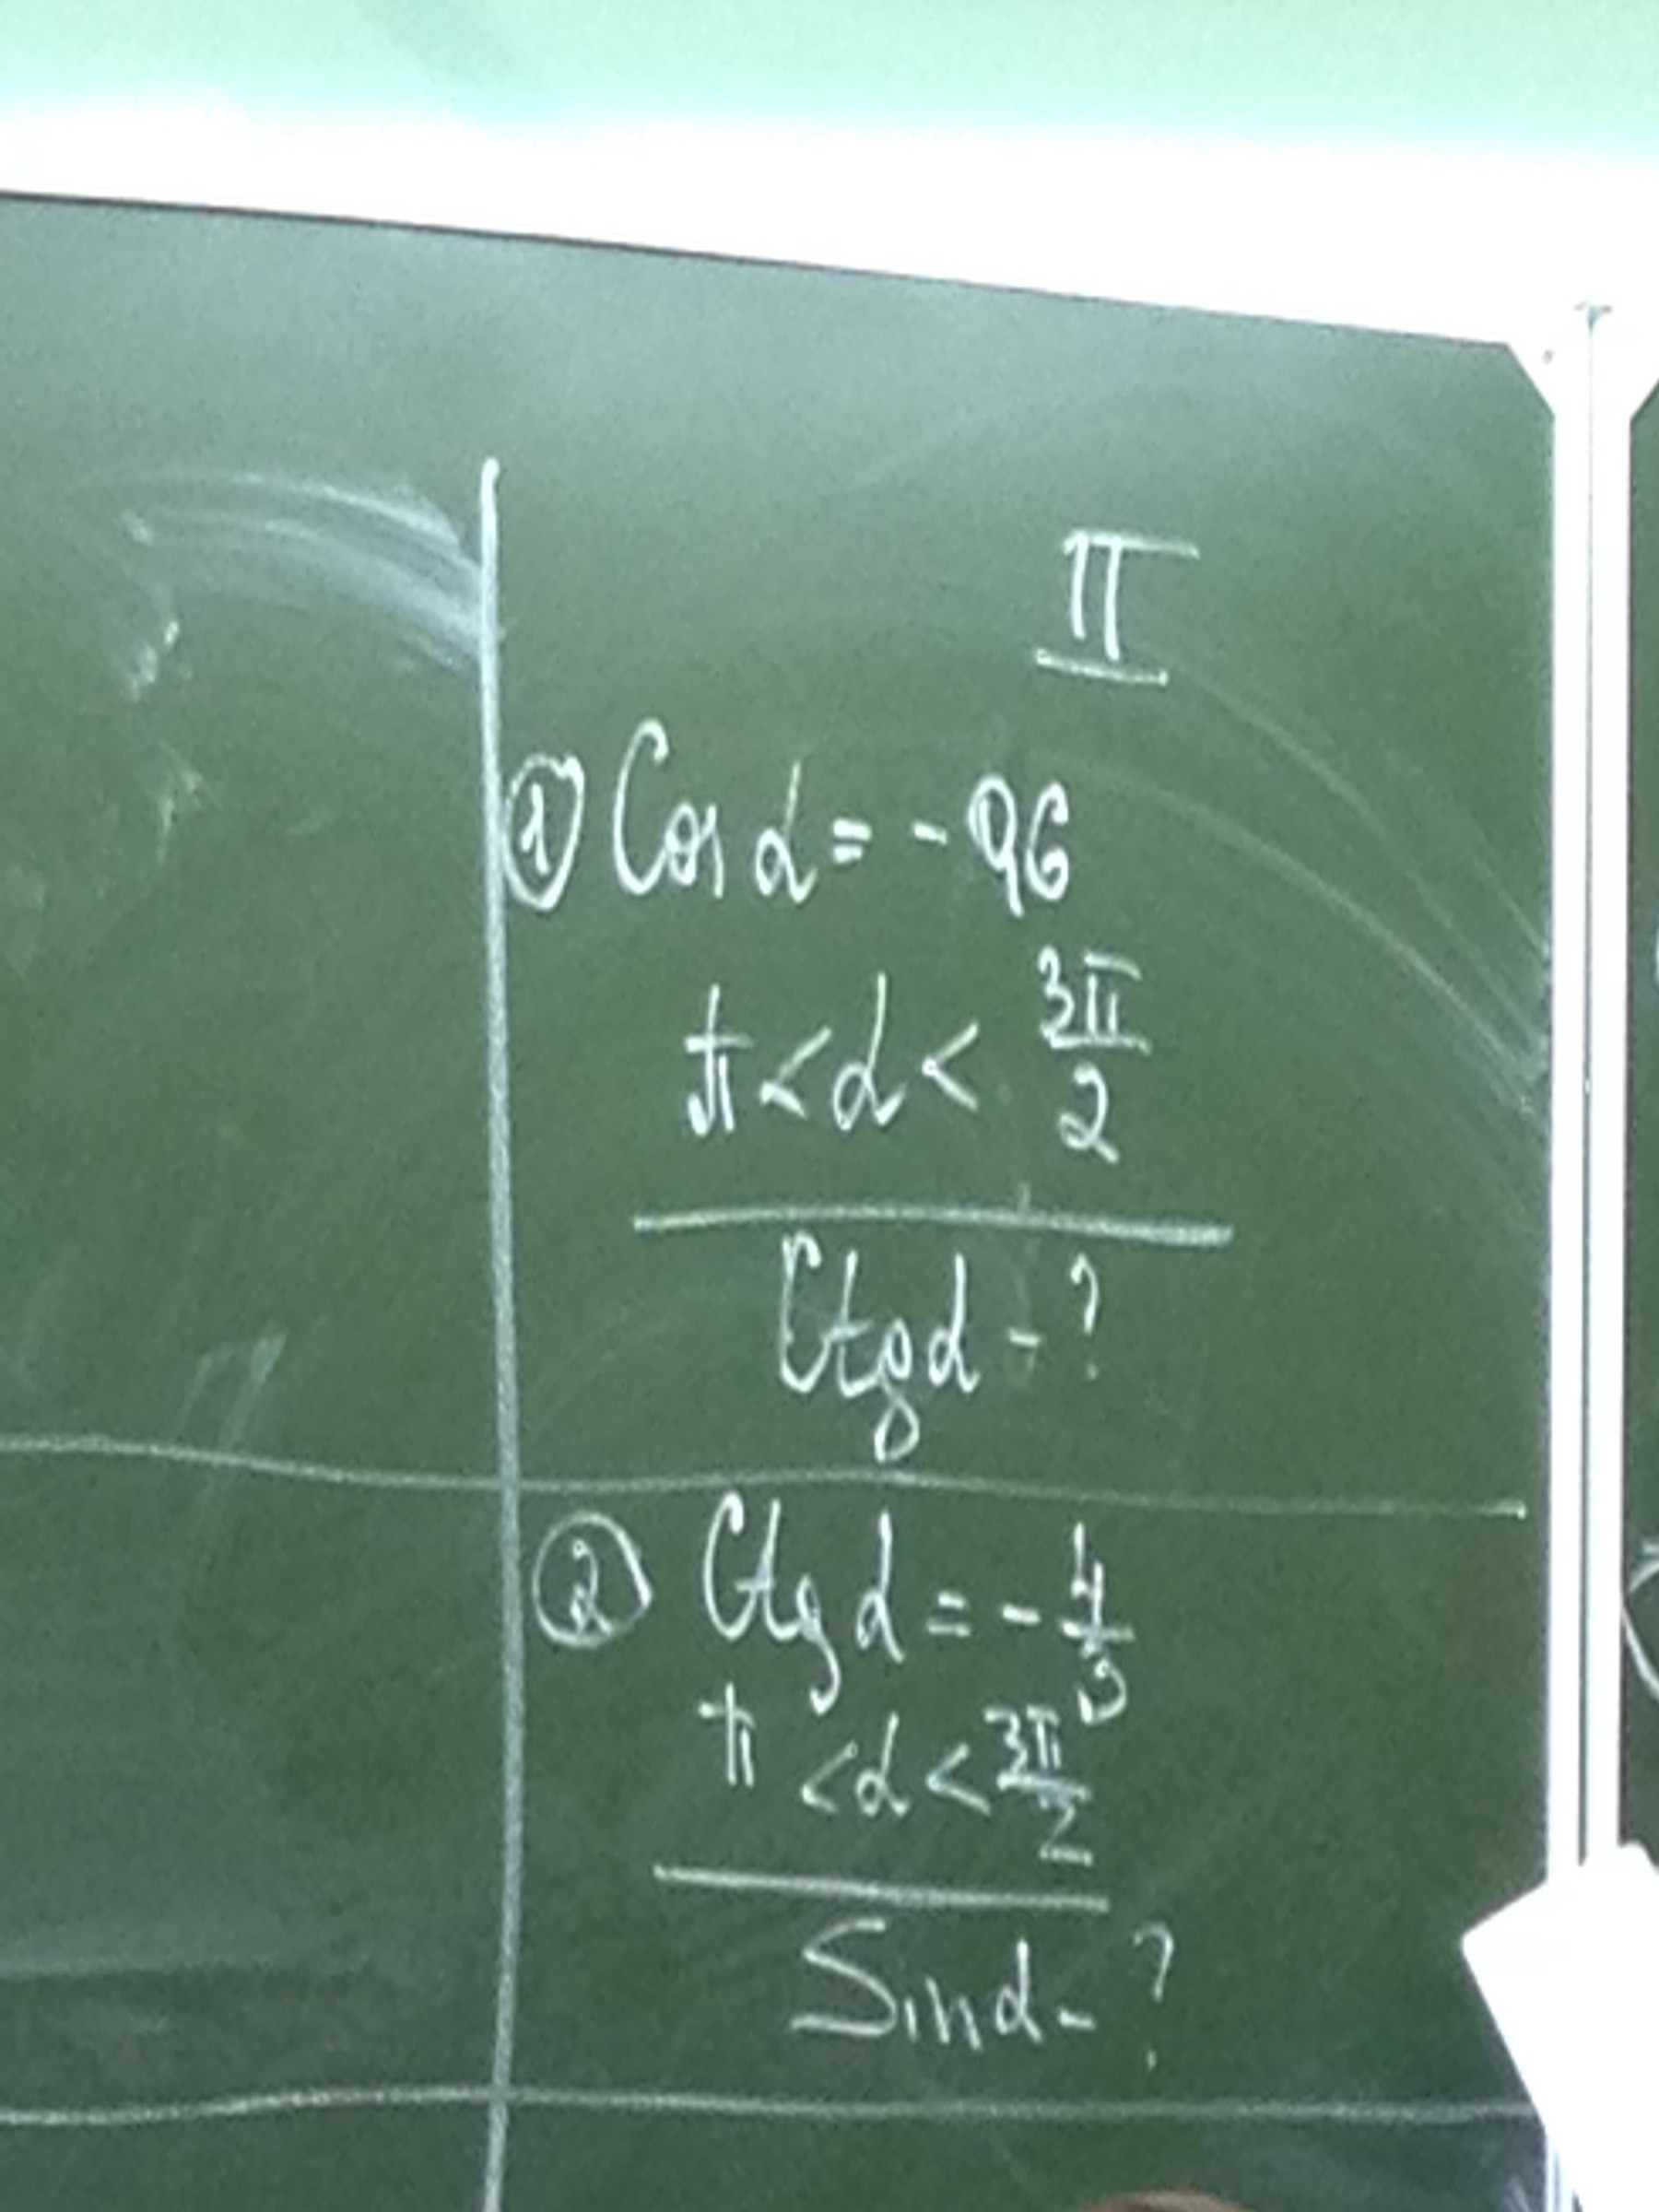 II
① Cos α = - 0,6
π < α < 3π/2
Ctg α - ?
② Ctg α = - 4/3
π < α < 3π/2
Sin α - ?